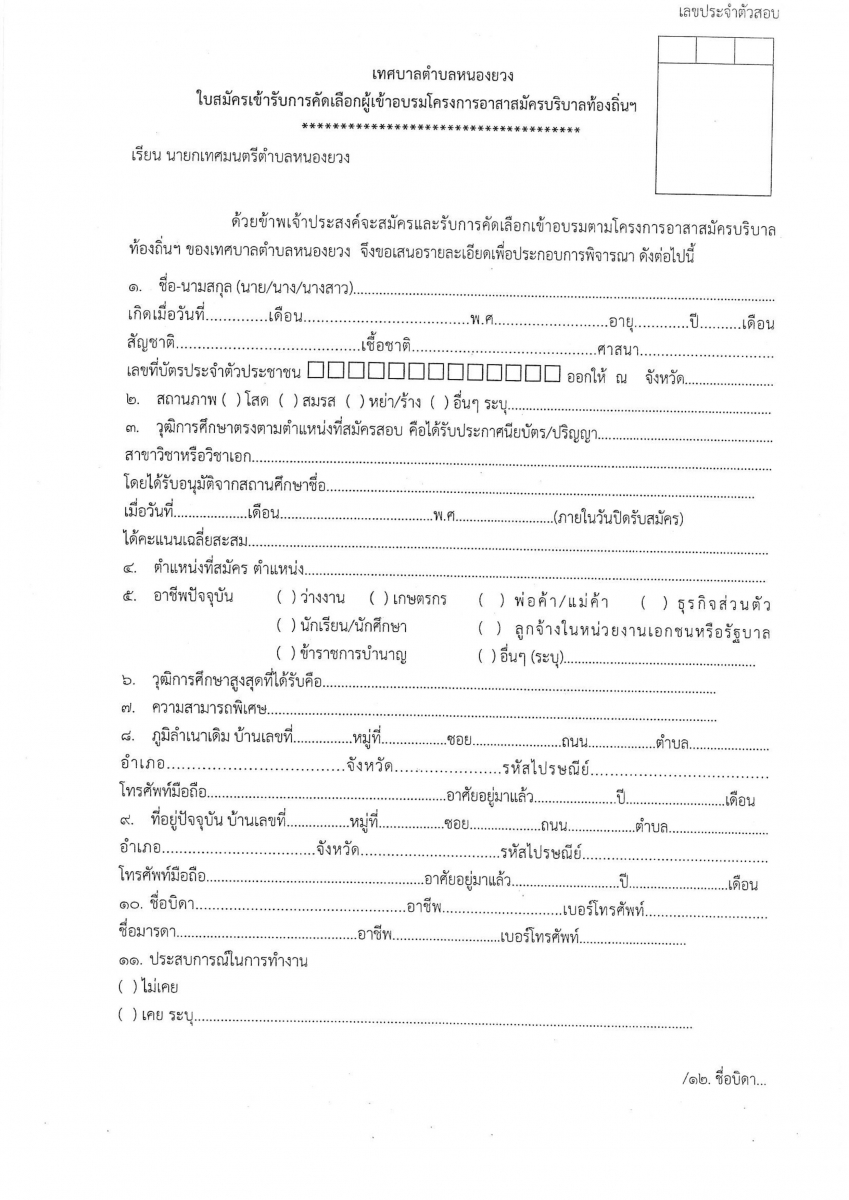 เลขประจำตัวสอบ
เทศบาลตำบลหนองยวง
ใบสมัครเข้ารับการคัดเลือกผู้เข้าอบรมโครงการอาสาสมัครบริบาลท้องถิ่นฯ
************************************
เรียน นายกเทศมนตรีตำบลหนองยวง
ด้วยข้าพเจ้าประสงค์จะสมัครและรับการคัดเลือกเข้าอบรมตามโครงการอาสาสมัครบริบาล
ท้องถิ่นฯ ของเทศบาลตำบลหนองยวง จึงขอเสนอรายละเอียดเพื่อประกอบการพิจารณา ดังต่อไปนี้
๑. ชื่อ-นามสกุล (นาย/นาง/นางสาว)................................................
เกิดเมื่อวันที่..............เดือน....................................พ.ศ.........................อายุ............ปี..........เดือน
สัญชาติ........................................เชื้อชาติ........................................ศาสนา..............................
เลขที่บัตรประจำตัวประชาชน □□□□□□□□□□□□□ ออกให้ ณ จังหวัด....................
๒. สถานภาพ ( ) โสด ( ) สมรส ( ) หย่า/ร้าง ( ) อื่นๆ ระบุ................................................
๓. วุฒิการศึกษาตรงตามตำแหน่งที่สมัครสอบ คือได้รับประกาศนียบัตร/ปริญญา................................
สาขาวิชาหรือวิชาเอก................................................
โดยได้รับอนุมัติจากสถานศึกษาชื่อ................................................
เมื่อวันที่..................เดือน....................................พ.ศ.........................(ภายในวันปิดรับสมัคร)
ได้คะแนนเฉลี่ยสะสม................................................
๔. ตำแหน่งที่สมัคร ตำแหน่ง................................................
๕. อาชีพปัจจุบัน ( ) ว่างงาน ( ) เกษตรกร ( ) พ่อค้า/แม่ค้า ( ) ธุรกิจส่วนตัว
( ) นักเรียน/นักศึกษา ( ) ลูกจ้างในหน่วยงานเอกชนหรือรัฐบาล
( ) ข้าราชการบำนาญ ( ) อื่นๆ (ระบุ)................................................
๖. วุฒิการศึกษาสูงสุดที่ได้รับคือ................................................
๗. ความสามารถพิเศษ................................................
๘. ภูมิลำเนาเดิม บ้านเลขที่..............หมู่ที่................ซอย......................ถนน................ตำบล....................
อำเภอ....................................จังหวัด......................รหัสไปรษณีย์....................................
โทรศัพท์มือถือ................................................อาศัยอยู่มาแล้ว....................ปี........................เดือน
๙. ที่อยู่ปัจจุบัน บ้านเลขที่................หมู่ที่................ซอย.................ถนน.................ตำบล........................
อำเภอ..............................จังหวัด..............................รหัสไปรษณีย์........................................
โทรศัพท์มือถือ................................................อาศัยอยู่มาแล้ว..........................ปี........................เดือน
๑๐. ชื่อบิดา................................................อาชีพ..............................เบอร์โทรศัพท์..............................
ชื่อมารดา........................................อาชีพ.........................เบอร์โทรศัพท์.........................
๑๑. ประสบการณ์ในการทำงาน
( ) ไม่เคย
( ) เคย ระบุ................................................
/๑๒. ชื่อบิดา...